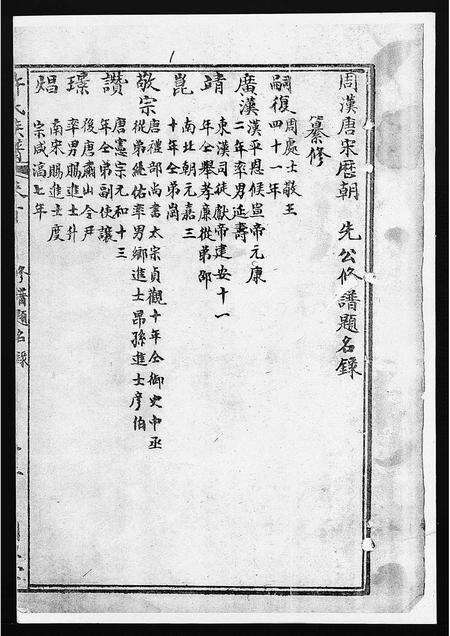 周漢唐宋歷朝 先公修譜題名錄
纂修
嗣復 周處士敬王
四十一年
廣漢 漢平恩侯宣帝元康
二年率男延壽
靖 東漢司徒獻帝建安十一
年仝舉孝廉從弟邵
崑 南北朝元嘉三
十年仝弟崗
敬宗 唐禮部尚書太宗貞觀十年仝御史中丞
從弟統佑率男鄉進士昂孫進士彥伯
讚 唐憲宗元和十三
年仝弟副使讓
璟 後唐蕭山令尹
率男賜進士升
焻 南宋賜進士度
宗咸淳七年
許氏族譜 卷首
修譜題名錄